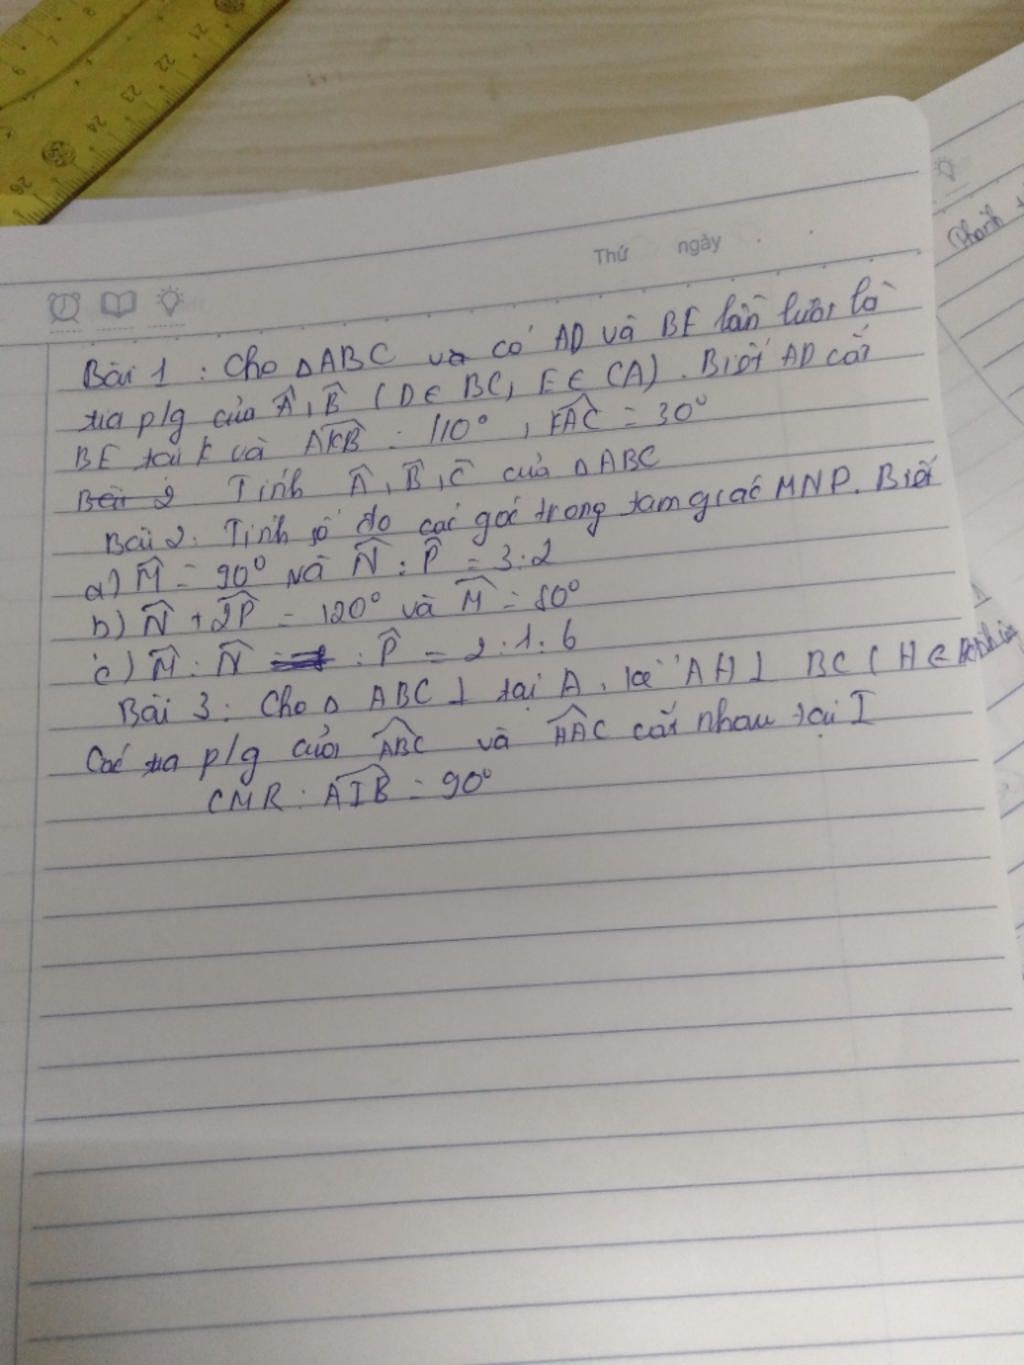 Thứ ngày
Bài 1 : Cho △ABC và có AD và BE lần lượt là
tia p/g của Â, B̂ (D ∈ BC, E ∈ CA). Biết AD cắt
BE tại K và AKB = 110°, KAC = 30°
Bài 2 Tính Â, B̂, Ĉ của △ABC
Bài 2: Tính số đo các góc trong tam giác MNP. Biết
a) M̂ = 90° và N̂ : P̂ = 3:2
b) N̂ + 2P̂ = 120° và M̂ = 80°
c) M̂ : N̂ : P̂ = 2:1:6
Bài 3: Cho △ ABC ⊥ tại A, kẻ AH ⊥ BC (H ∈
Các tia p/g của ABC và HAC cắt nhau tại I
CMR : AIB = 90°
26 24 23 22 21